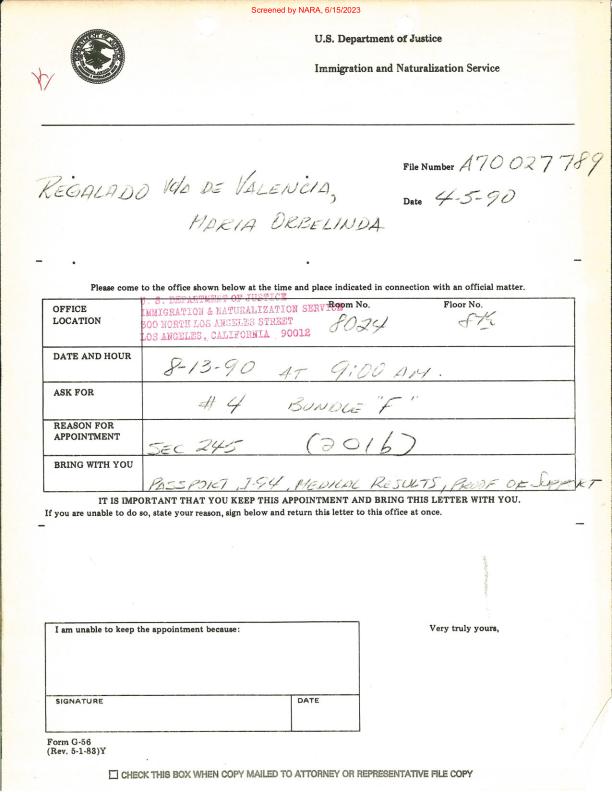 Screened by NARA, 6/15/2023
U.S. Department of Justice
Immigration and Naturalization Service
File Number A70 027 789
REGALADO Vda DE VALENCIA,
Date 4-5-90
MARIA ORBELINDA
Please come to the office shown below at the time and place indicated in connection with an official matter.
OFFICE LOCATION
U. S. DEPARTMENT OF JUSTICE
IMMIGRATION & NATURALIZATION SERVICE
300 NORTH LOS ANGELES STREET
LOS ANGELES, CALIFORNIA 90012
Room No. 8024
Floor No. 8th
DATE AND HOUR 8-13-90 AT 9:00 AM.
ASK FOR #4 BUNDLE "F"
REASON FOR APPOINTMENT SEC 245 (2016)
BRING WITH YOU PASSPORT, I-94, MEDICAL RESULTS, PROOF OF SUPPORT
IT IS IMPORTANT THAT YOU KEEP THIS APPOINTMENT AND BRING THIS LETTER WITH YOU.
If you are unable to do so, state your reason, sign below and return this letter to this office at once.
I am unable to keep the appointment because:
Very truly yours,
SIGNATURE
DATE
Form G-56
(Rev. 5-1-83)Y
CHECK THIS BOX WHEN COPY MAILED TO ATTORNEY OR REPRESENTATIVE FILE COPY